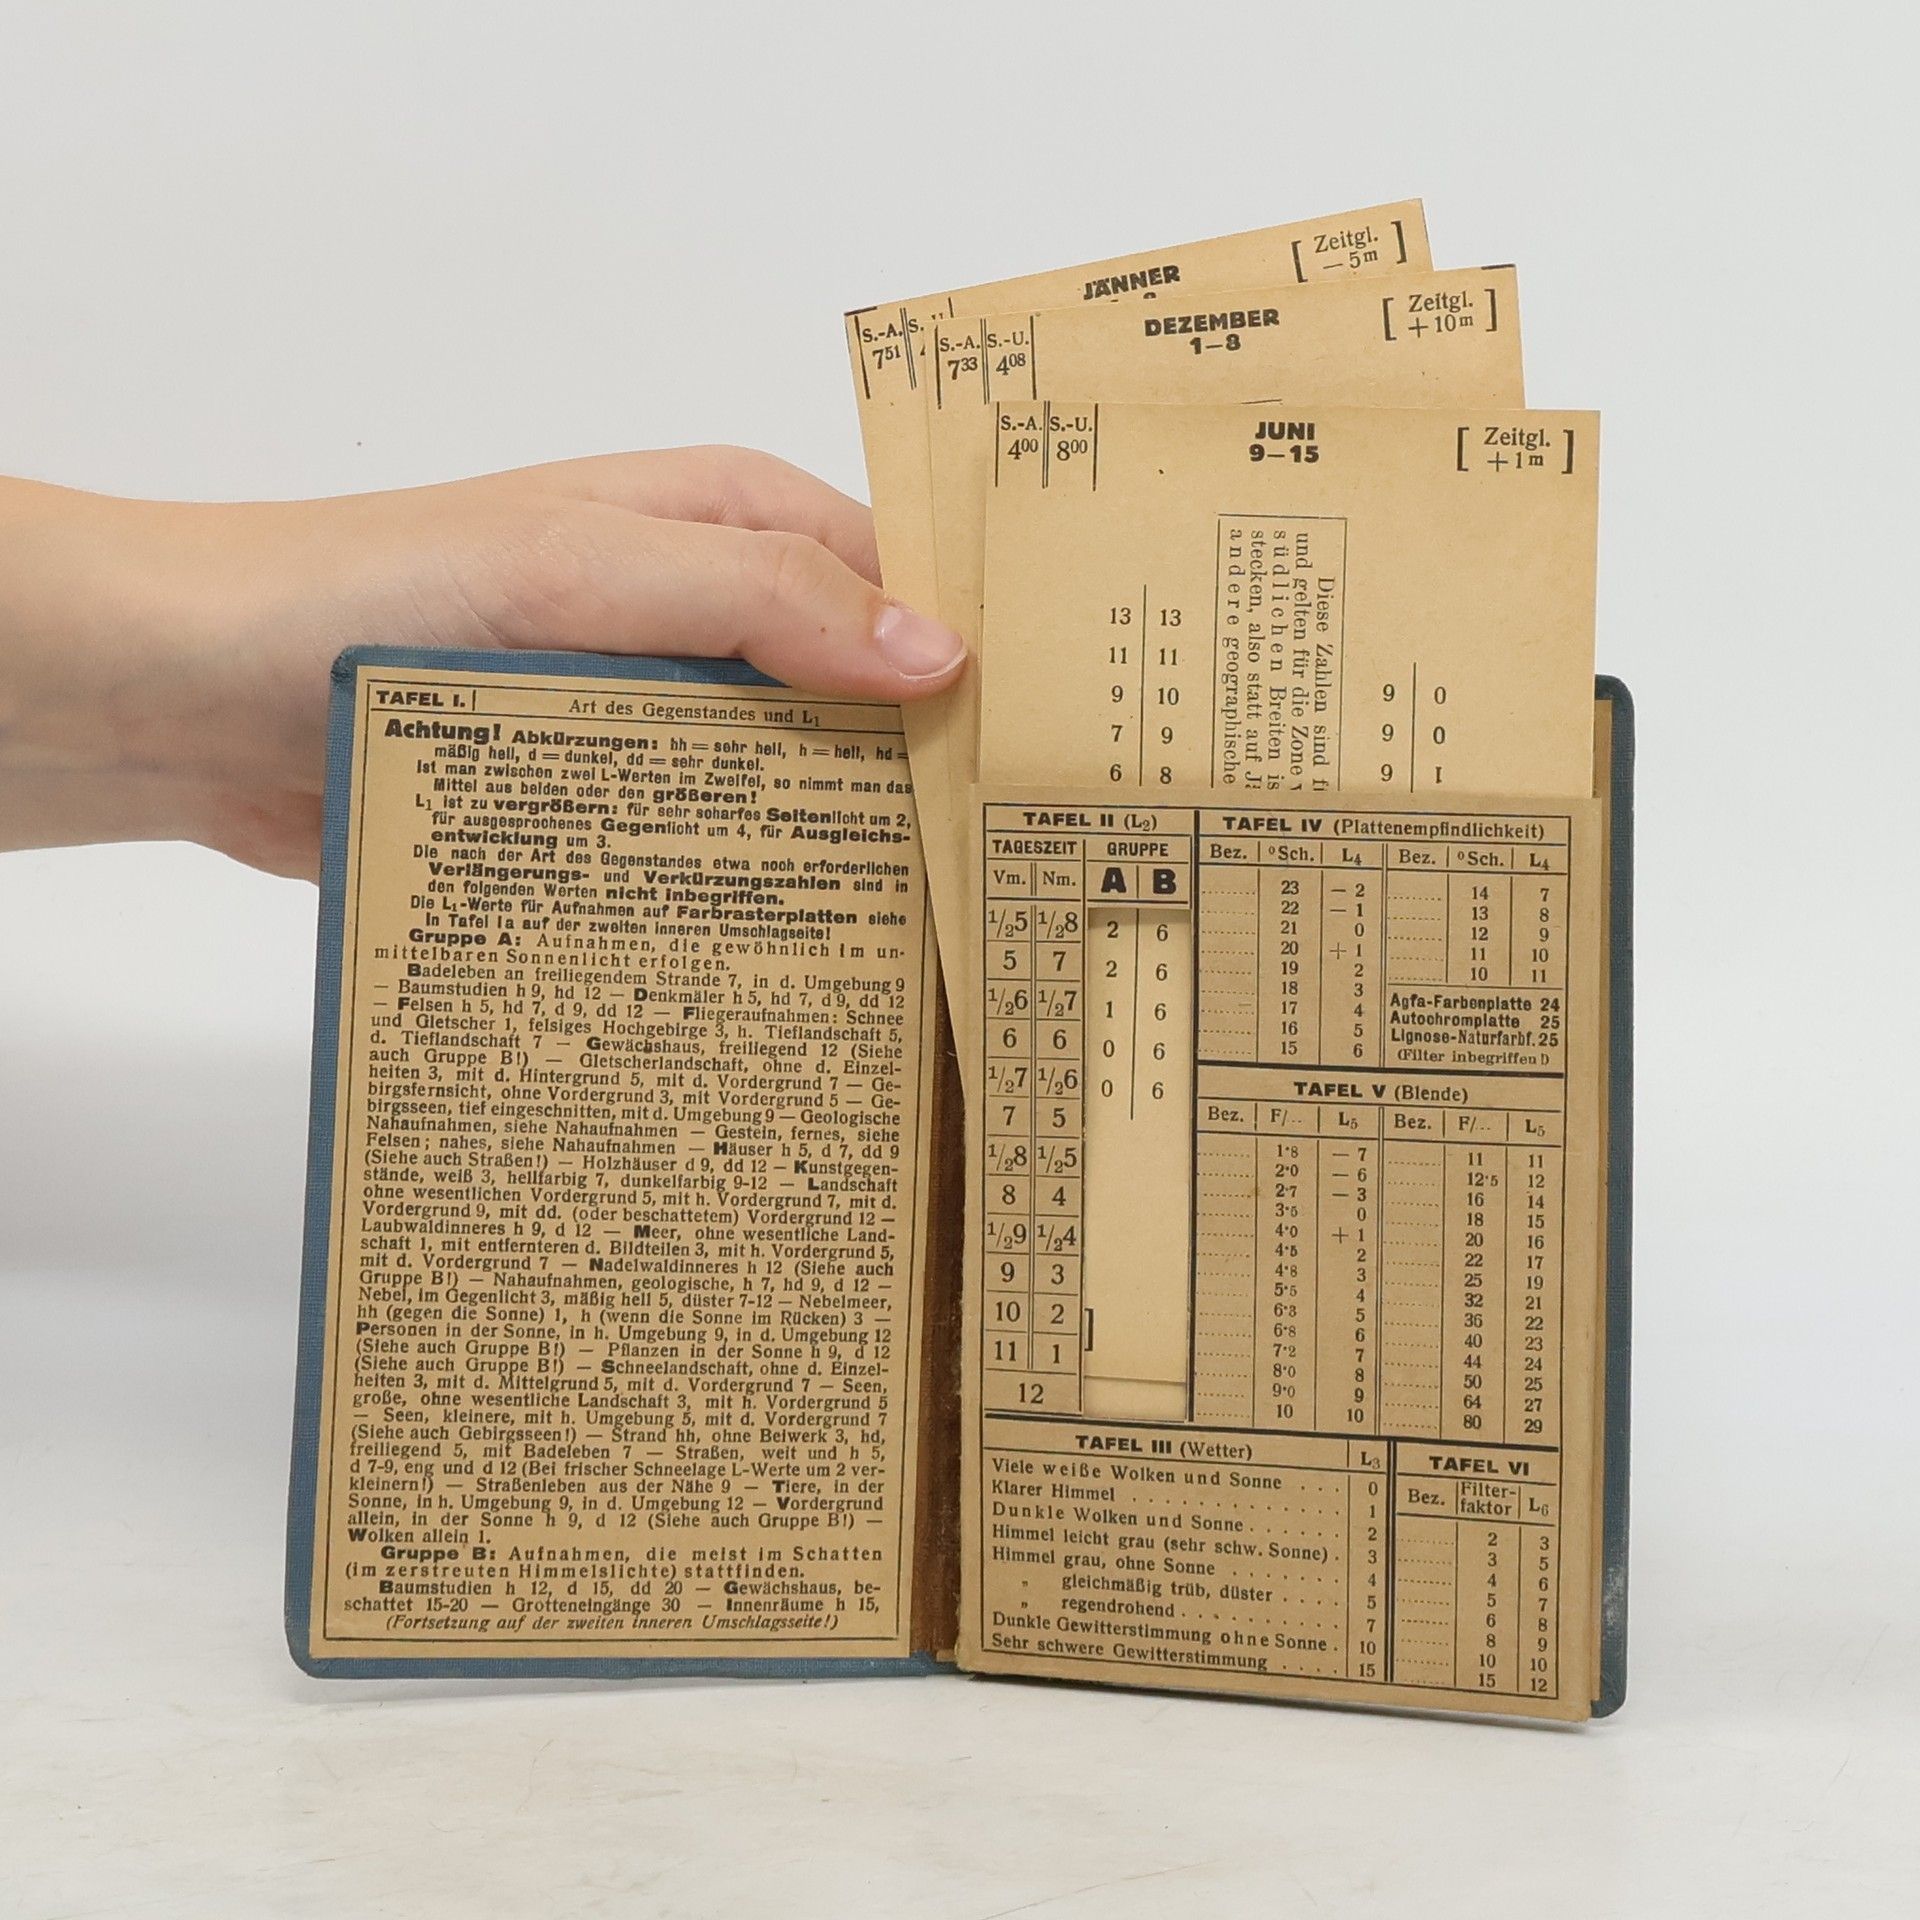 JÄNNER
[ Zeitgl. — 5m ]
S.-A. 7 51
DEZEMBER
1—8
[ Zeitgl. + 10m ]
S.-A. S.-U.
7 33 4 08
JUNI
9—15
[ Zeitgl. + 1m ]
S.-A. S.-U.
4 00 8 00
13 13
11 11
9 10
7 9
6 8
Diese Zahlen sind
und gelten für die Zone
südlichen Breiten
stecken, also statt auf
andere geographische
0 6
0 6
1 6
TAFEL I. Art des Gegenstandes und L1
Achtung! Abkürzungen: hh = sehr hell, h = hell, hd =
mäßig hell, d = dunkel, dd = sehr dunkel.
Ist man zwischen zwei L-Werten im Zweifel, so nimmt man das
Mittel aus beiden oder den größeren!
L1 ist zu vergrößern: für sehr scharfes Seitenlicht um 2,
für ausgesprochenes Gegenlicht um 4, für Ausgleichs-
entwicklung um 3.
Die nach der Art des Gegenstandes etwa noch erforderlichen
Verlängerungs- und Verkürzungszahlen sind in
den folgenden Werten nicht inbegriffen.
Die L1-Werte für Aufnahmen auf Farbrasterplatten siehe
in Tafel Ia auf der zweiten inneren Umschlagseite!
Gruppe A: Aufnahmen, die gewöhnlich im un-
mittelbaren Sonnenlicht erfolgen.
Badeleben an freiliegendem Strande 7, in d. Umgebung 9
— Baumstudien h 9, hd 12 — Denkmäler h 5, hd 7, d 9, dd 12
— Felsen h 5, hd 7, d 9, dd 12 — Fliegeraufnahmen: Schnee
und Gletscher 1, felsiges Hochgebirge 3, h. Tieflandschaft 5,
d. Tieflandschaft 7 — Gewächshaus, freiliegend 12 (Siehe
auch Gruppe B!) — Gletscherlandschaft, ohne d. Einzel-
heiten 3, mit d. Hintergrund 5, mit d. Vordergrund 7 — Ge-
birgsfernsicht, ohne Vordergrund 3, mit Vordergrund 5 — Ge-
birgsseen, tief eingeschnitten, mit d. Umgebung 9 — Geologische
Nahaufnahmen, siehe Nahaufnahmen — Gestein, fernes, siehe
Felsen; nahes, siehe Nahaufnahmen — Häuser h 5, d 7, dd 9
(Siehe auch Straßen!) — Holzhäuser d 9, dd 12 — Kunstgegen-
stände, weiß 3, hellfarbig 7, dunkelfarbig 9-12 — Landschaft
ohne wesentlichen Vordergrund 5, mit h. Vordergrund 7, mit d.
Vordergrund 9, mit dd. (oder beschattetem) Vordergrund 12 —
Laubwaldinneres h 9, d 12 — Meer, ohne wesentliche Land-
schaft 1, mit entfernteren d. Bildteilen 3, mit h. Vordergrund 5,
mit d. Vordergrund 7 — Nadelwaldinneres h 12 (Siehe auch
Gruppe B!) — Nahaufnahmen, geologische, h 7, hd 9, d 12 —
Nebel, im Gegenlicht 3, mäßig hell 5, düster 7-12 — Nebelmeer,
hh (gegen die Sonne) 1, h (wenn die Sonne im Rücken) 3 —
Personen in der Sonne, in h. Umgebung 9, in d. Umgebung 12
(Siehe auch Gruppe B!) — Pflanzen in der Sonne h 9, d 12
(Siehe auch Gruppe B!) — Schneelandschaft, ohne d. Einzel-
heiten 3, mit d. Mittelgrund 5, mit d. Vordergrund 7 — Seen,
große, ohne wesentliche Landschaft 3, mit h. Vordergrund 5
— Seen, kleinere, mit h. Umgebung 5, mit d. Vordergrund 7
(Siehe auch Gebirgsseen!) — Strand hh, ohne Beiwerk 3, hd,
freiliegend 5, mit Badeleben 7 — Straßen, weit und h 5,
d 7-9, eng und d 12 (Bei frischer Schneelage L-Werte um 2 ver-
kleinern!) — Straßenleben aus der Nähe 9 — Tiere, in der
Sonne, in h. Umgebung 9, in d. Umgebung 12 — Vordergrund
allein, in der Sonne h 9, d 12 (Siehe auch Gruppe B!) —
Wolken allein 1.
Gruppe B: Aufnahmen, die meist im Schatten
(im zerstreuten Himmelslichte) stattfinden.
Baumstudien h 12, d 15, dd 20 — Gewächshaus, be-
schattet 15-20 — Grotteneingänge 30 — Innenräume h 15,
(Fortsetzung auf der zweiten inneren Umschlagsseite!)
TAFEL II (L2)
TAGESZEIT GRUPPE
Vm. Nm. A B
1/25 1/28 2 6
5 7 2 6
1/26 1/27 1 6
6 6 0 6
1/27 1/26 0 6
7 5
1/28 1/25
8 4
1/29 1/24
9 3
10 2 ]
11 1
12
TAFEL IV (Plattenempfindlichkeit)
Bez. °Sch. L4 Bez. °Sch. L4
23 — 2 14 7
22 — 1 13 8
21 0 12 9
20 + 1 11 10
19 2 10 11
18 3
17 4
16 5
15 6
Agfa-Farbenplatte 24
Autochromplatte 25
Lignose-Naturfarbf. 25
(Filter inbegriffen!)
TAFEL V (Blende)
Bez. F/... L5 Bez. F/... L5
1·8 — 7 11 11
2·0 — 6 12·5 12
2·7 — 3 16 14
3·5 0 18 15
4·0 + 1 20 16
4·5 2 22 17
4·8 3 25 19
5·5 4 32 21
6·3 5 36 22
6·8 6 40 23
7·2 7 44 24
8·0 8 50 25
9·0 9 64 27
10 10 80 29
TAFEL III (Wetter) L3
Viele weiße Wolken und Sonne . . . 0
Klarer Himmel . . . . . . . . . . 1
Dunkle Wolken und Sonne . . . . . . 2
Himmel leicht grau (sehr schw. Sonne) . 3
Himmel grau, ohne Sonne . . . . . . . 4
„ gleichmäßig trüb, düster . . . . 5
„ regendrohend . . . . . . . . 7
Dunkle Gewitterstimmung ohne Sonne . 10
Sehr schwere Gewitterstimmung . . . . 15
TAFEL VI
Bez. Filter-faktor L6
2 3
3 5
4 6
5 7
6 8
8 9
10 10
15 12